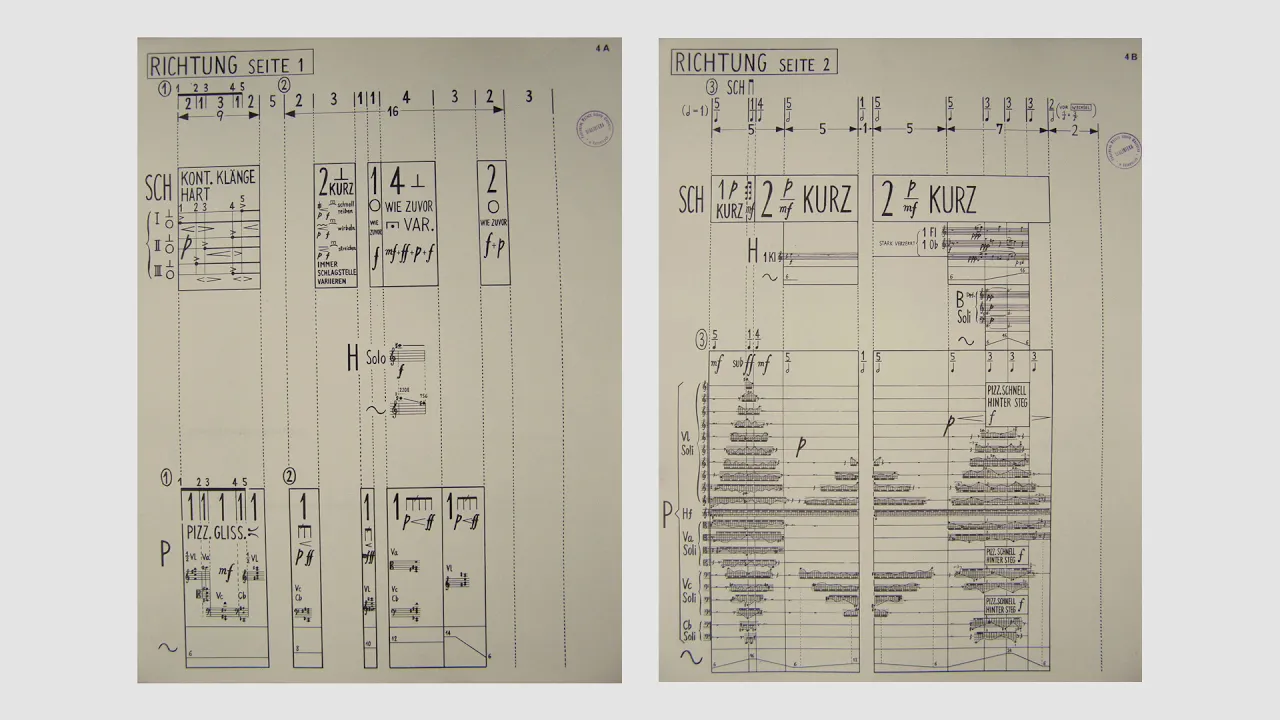 4 A
RICHTUNG SEITE 1
① 1 2 3 4 5 ②
2 1 3 1 2 5 2 3 1 1 4 3 2 3
9 16
SCH
KONT. KLÄNGE
HART
1 2 3 4 5
I
II
III
p
2 ⊥
KURZ
schnell
reiben
p f
wirbeln
p f
streichen
p f
IMMER
SCHLAGSTELLE
VARIIEREN
1
WIE
ZUVOR
f
4 ⊥
WIE ZUVOR
VAR.
mf·ff·p·f
2
WIE ZUVOR
f+p
H Solo
f
① 1 2 3 4 5 ②
P
1 1 1 1 1
PIZZ. GLISS.
Vl Va Vl
mf
Vc Cb
6
1
p ff
Vc
Cb
8
1
fff
Vc
Cb
10
1
p<ff
Va
Vc
Cb
12
1
p<ff
Vl
14
6
4 B
RICHTUNG SEITE 2
③ SCH
5 1 4 5 1 5 5 3 3 3 2
5 5 1 5 7 2
SCH
1 p
KURZ
mf
2 p mf KURZ
2 p mf KURZ
H 1 Kl
6
STARK VERZERRT
1 Fl
1 Ob
ppp
6
B
Soli
pp
p
p
③ 5 1 4
mf sub ff mf
5 1 5 5 3 3 3
PIZZ. SCHNELL
HINTER STEG
f
p
p
P
Vl
Soli
Hf
Va
Soli
PIZZ. SCHNELL
HINTER STEG f
Vc
Soli
PIZZ. SCHNELL
HINTER STEG f
Cb
Soli